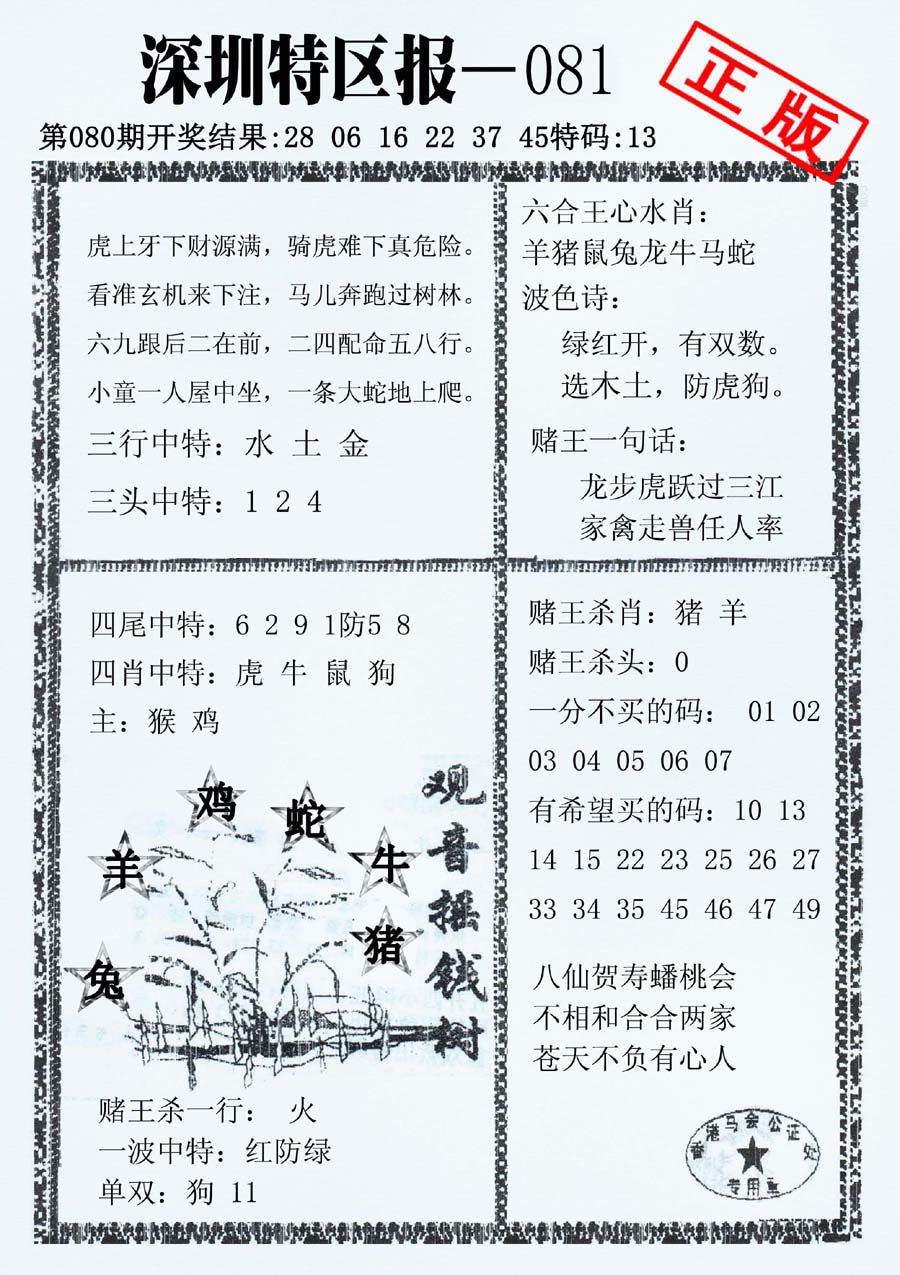 深圳特区报—081
正版
第080期开奖结果:28 06 16 22 37 45特码:13
虎上牙下财源满，骑虎难下真危险。
看准玄机来下注，马儿奔跑过树林。
六九跟后二在前，二四配命五八行。
小童一人屋中坐，一条大蛇地上爬。
三行中特：水 土 金
三头中特：1 2 4
六合王心水肖：
羊猪鼠兔龙牛马蛇
波色诗：
绿红开，有双数。
选木土，防虎狗。
赌王一句话：
龙步虎跃过三江
家禽走兽任人率
四尾中特：6 2 9 1防5 8
四肖中特：虎 牛 鼠 狗
主：猴 鸡
鸡
蛇
羊
牛
猪
兔
观音摇钱树
赌王杀一行： 火
一波中特：红防绿
单双：狗 11
赌王杀肖：猪 羊
赌王杀头：0
一分不买的码： 01 02
03 04 05 06 07
有希望买的码：10 13
14 15 22 23 25 26 27
33 34 35 45 46 47 49
八仙贺寿蟠桃会
不相和合合两家
苍天不负有心人
香港马会公证处
专用章